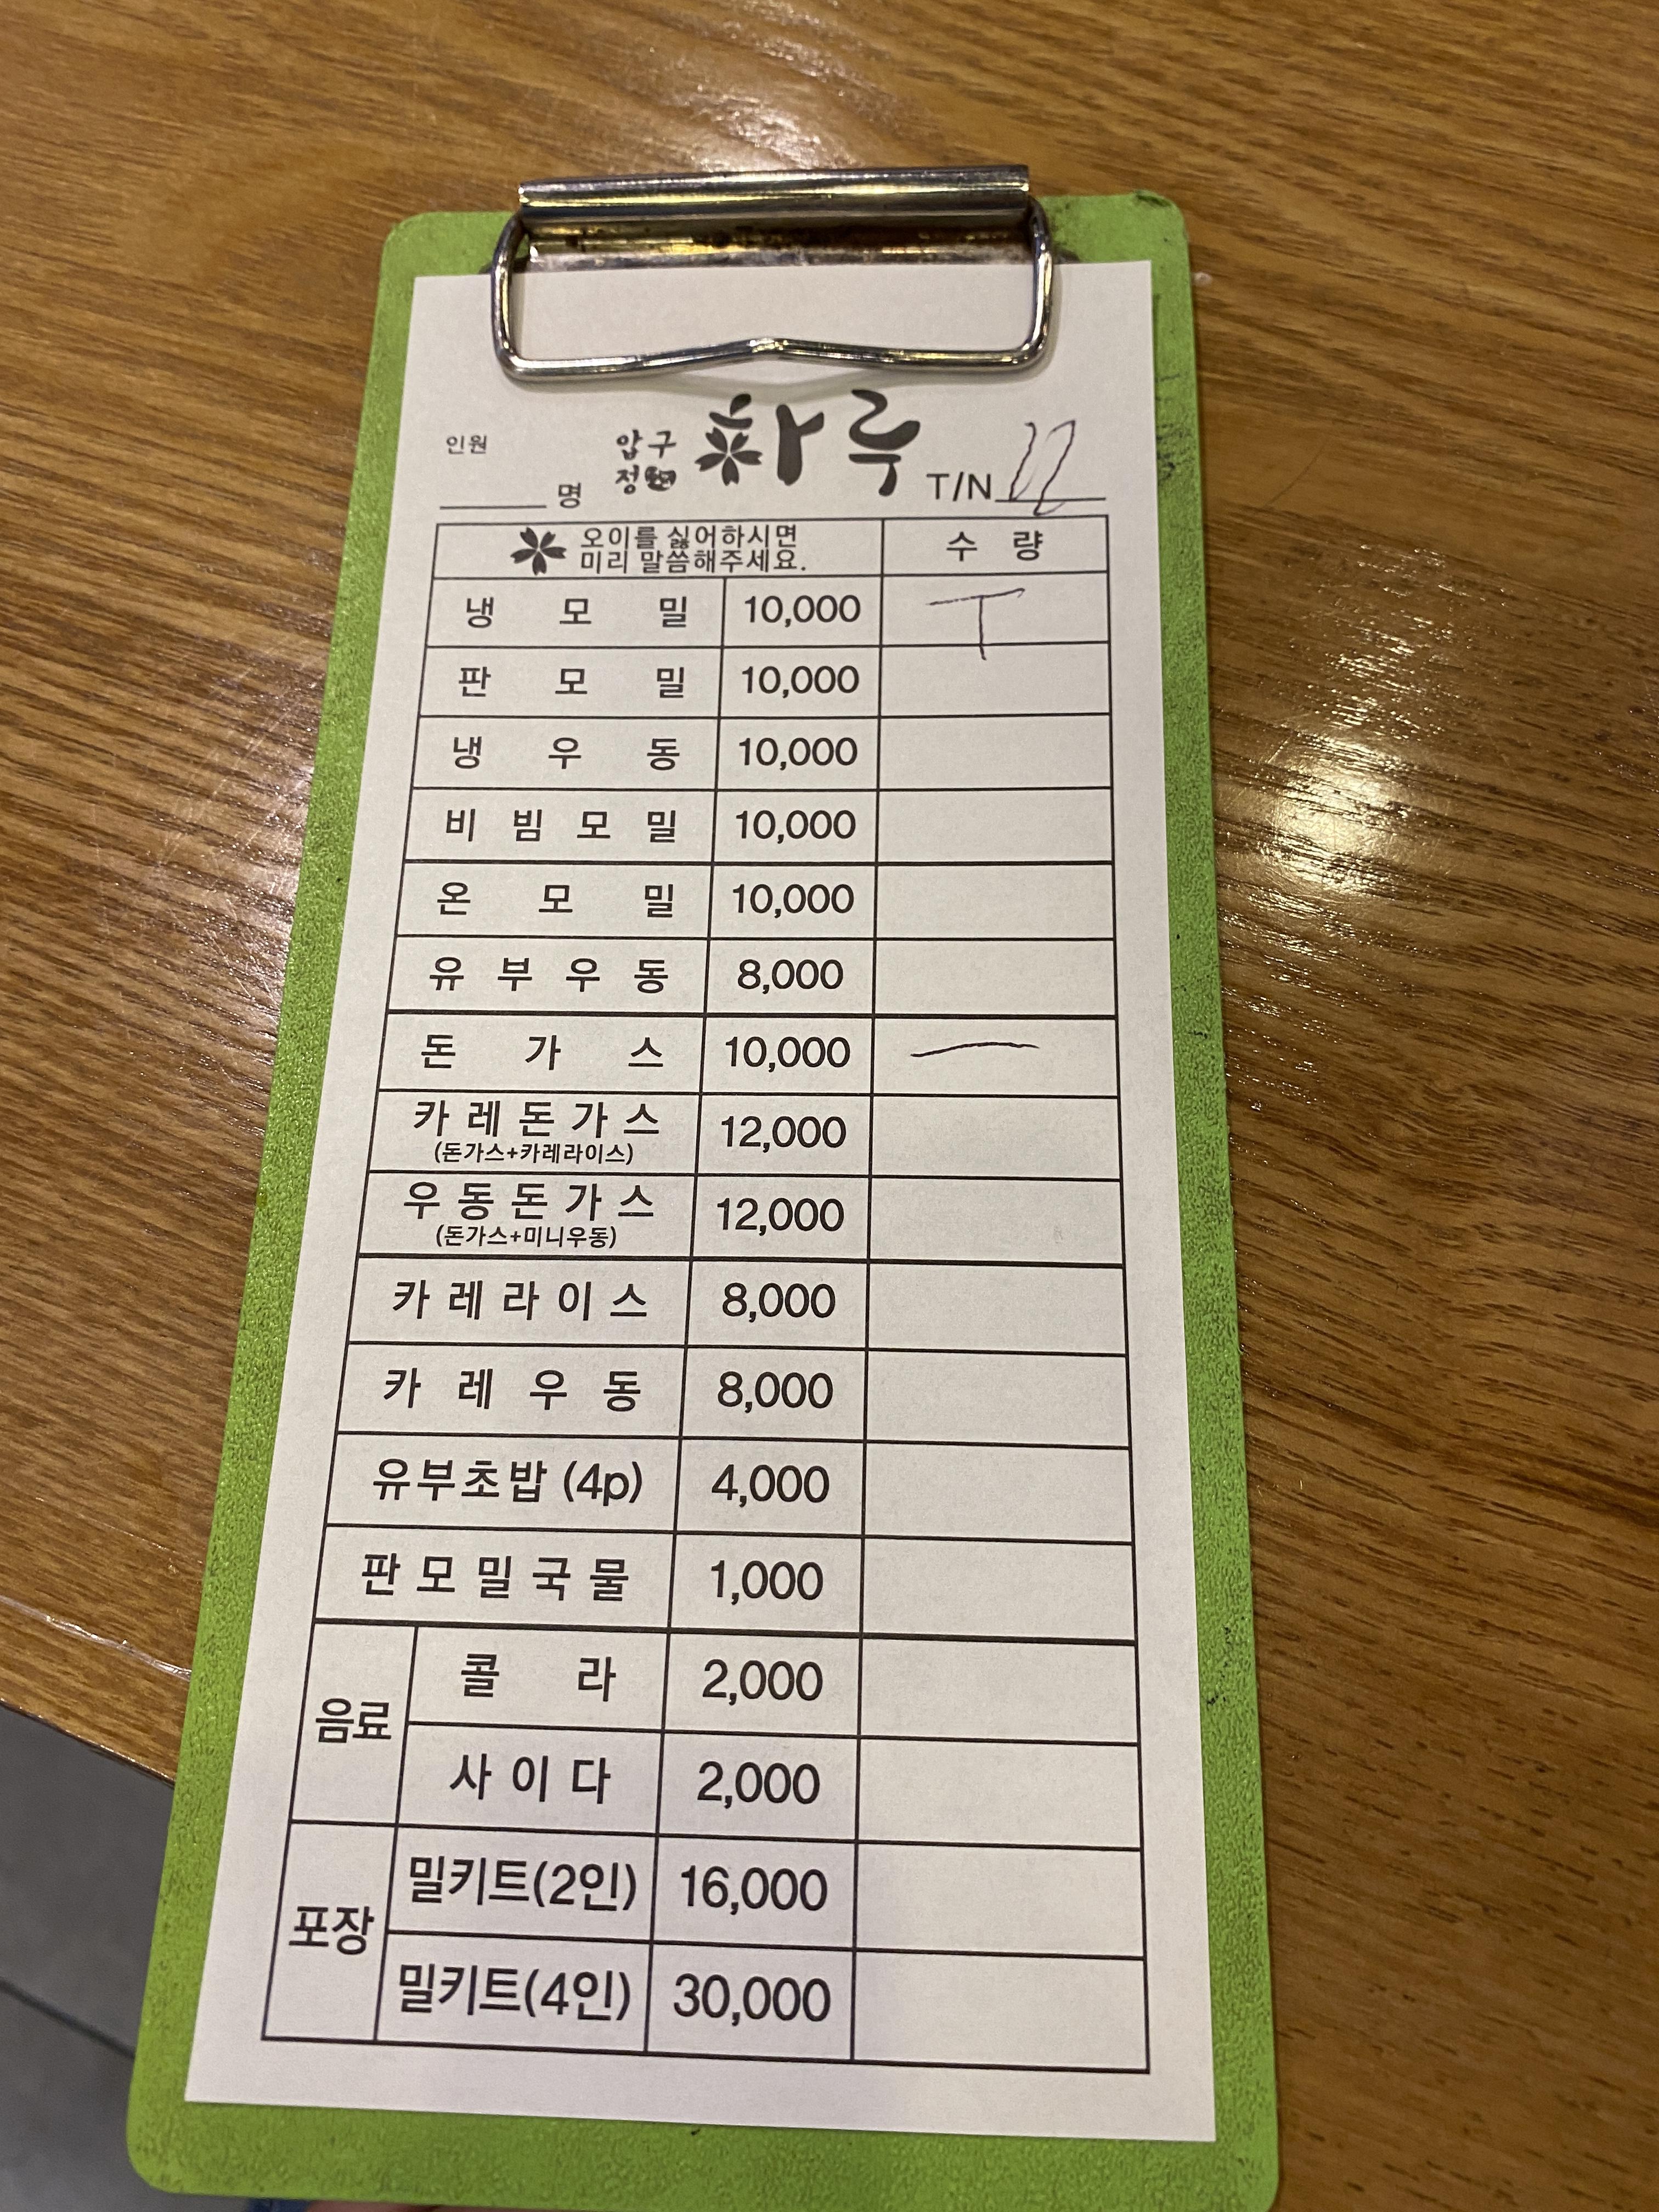 인원
압구
정
하루
명
T/N
오이를 싫어하시면
미리 말씀해주세요.
수 량
냉 모 밀 10,000 T
판 모 밀 10,000
냉 우 동 10,000
비 빔 모 밀 10,000
온 모 밀 10,000
유 부 우 동 8,000
돈 가 스 10,000 一
카 레 돈 가 스 12,000
(돈가스+카레라이스)
우 동 돈 가 스 12,000
(돈가스+미니우동)
카 레 라 이 스 8,000
카 레 우 동 8,000
유부초밥 (4p) 4,000
판 모 밀 국 물 1,000
음료
콜 라 2,000
사 이 다 2,000
포장
밀키트(2인) 16,000
밀키트(4인) 30,000